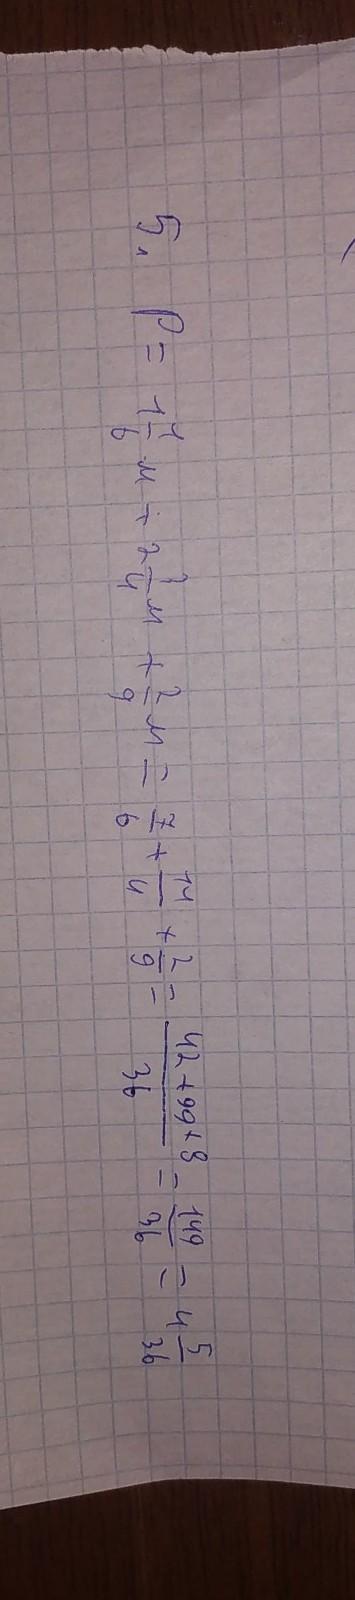 5. P = 1 1/6 м + 2 3/4 м + 2/9 м = 7/6 + 11/4 + 2/9 = (42+99+8)/36 = 149/36 = 4 5/36